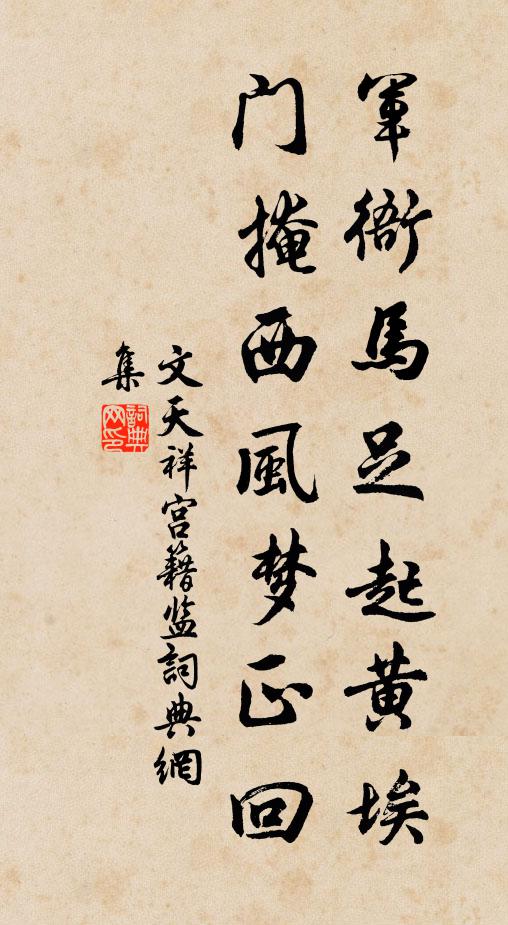 軍衙馬足起黄埃
门掩西風梦正回
文天祥宫籍监詞典網
集
詞典网印